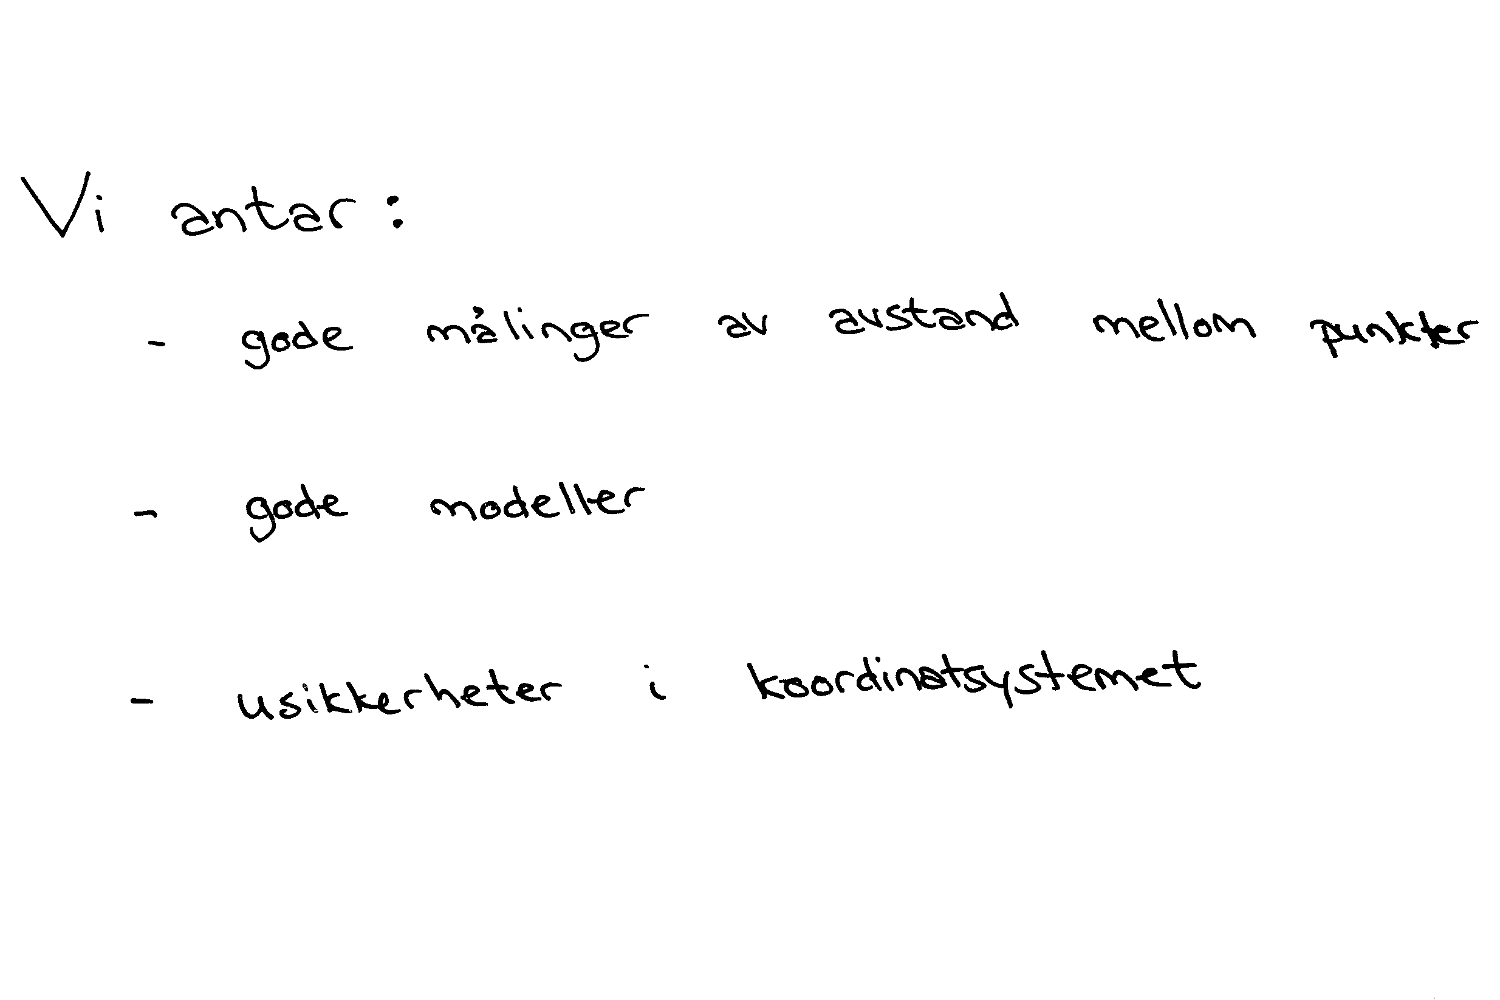 Vi antar:
- gode målinger av avstand mellom punkter
- gode modeller
- usikkerheter i koordinatsystemet